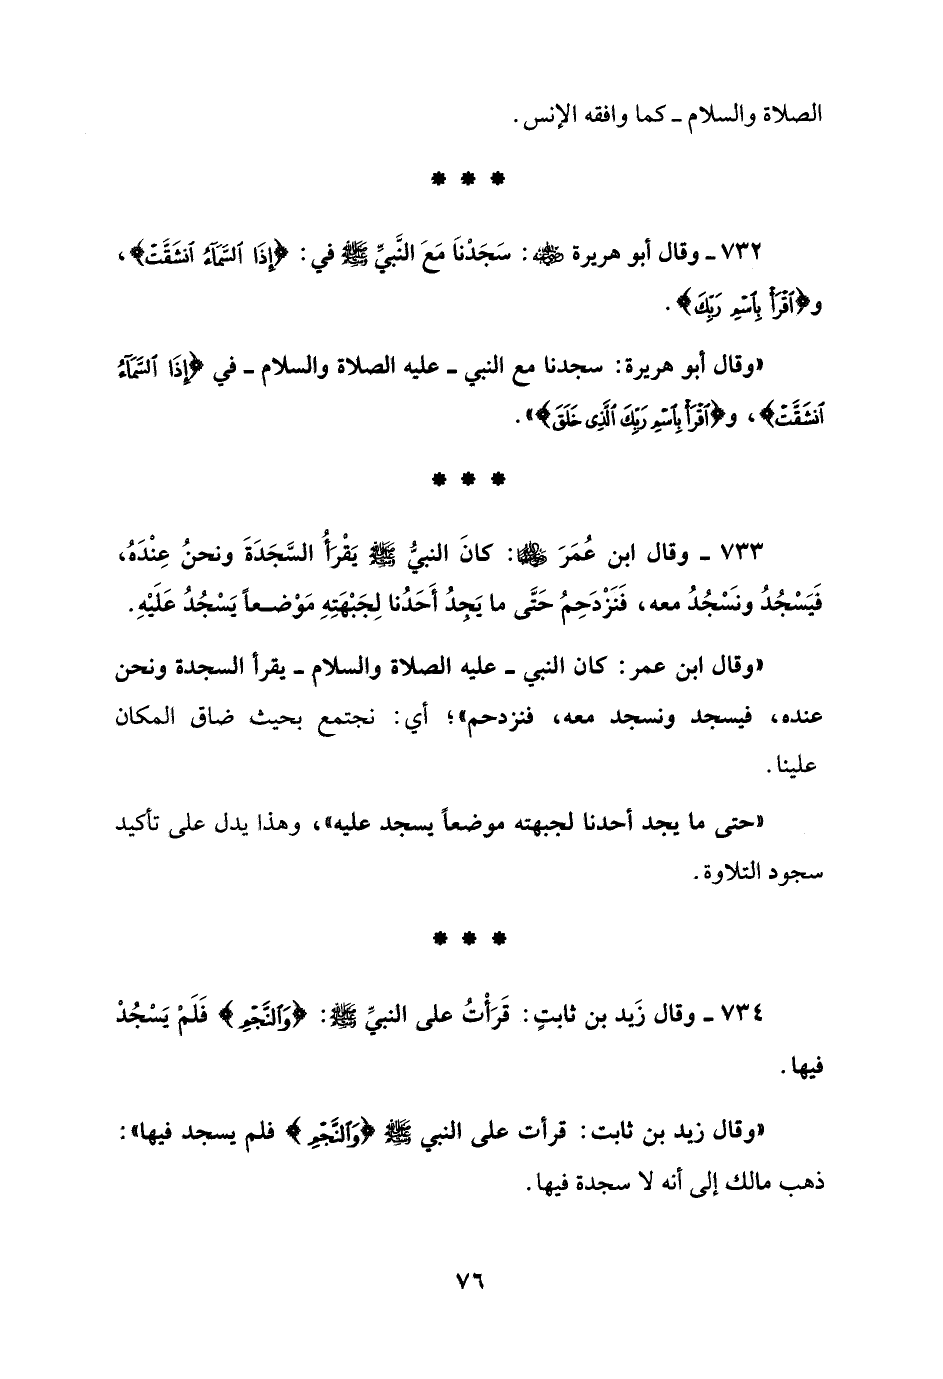 الصلاة والسلام ـ كما وافقه الإنس.
* * *
٧٣٢ ـ وقال أبو هريرة رضي الله عنه: سَجَدْنَا مَعَ النَّبيِّ ﷺ في: ﴿إِذَا ٱلسَّمَآءُ ٱنشَقَّتْ﴾،
و﴿ٱقْرَأْ بِٱسْمِ رَبِّكَ﴾.
«وقال أبو هريرة: سجدنا مع النبي ـ عليه الصلاة والسلام ـ في ﴿إِذَا ٱلسَّمَآءُ
ٱنشَقَّتْ﴾، و﴿ٱقْرَأْ بِٱسْمِ رَبِّكَ ٱلَّذِى خَلَقَ﴾».
* * *
٧٣٣ ـ وقال ابن عُمَرَ رضي الله عنهما: كانَ النبيُّ ﷺ يَقْرأُ السَّجَدَةَ ونحنُ عِنْدَهُ،
فَيَسْجُدُ ونَسْجُدُ معه، فَنَزْدَحِمُ حَتَّى ما يَجِدُ أَحَدُنا لِجَبْهَتِهِ مَوْضعاً يَسْجُدُ عَلَيْهِ.
«وقال ابن عمر: كان النبي ـ عليه الصلاة والسلام ـ يقرأ السجدة ونحن
عنده، فيسجد ونسجد معه، فنزدحم»؛ أي: نجتمع بحيث ضاق المكان
علينا.
«حتى ما يجد أحدنا لجبهته موضعاً يسجد عليه»، وهذا يدل على تأكيد
سجود التلاوة.
* * *
٧٣٤ ـ وقال زَيد بن ثابتٍ: قَرَأْتُ على النبيِّ ﷺ: ﴿وَٱلنَّجْمِ﴾ فَلَمْ يَسْجُدْ
فيها.
«وقال زيد بن ثابت: قرأت على النبي ﷺ ﴿وَٱلنَّجْمِ﴾ فلم يسجد فيها»:
ذهب مالك إلى أنه لا سجدة فيها.
٧٦